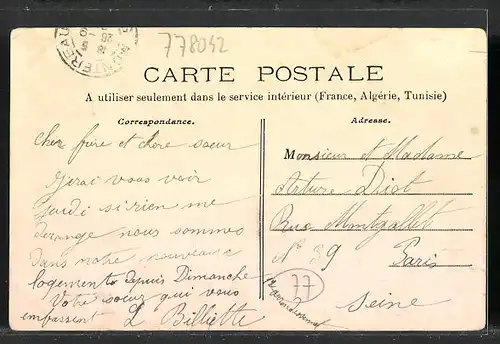 MONTEREAU
778042
CARTE POSTALE
A utiliser seulement dans le service intérieur (France, Algérie, Tunisie)
Correspondance.
Cher frere et chere soeur
J'irai vous voir
Jeudi si rien me
derange nous sommes
dans notre nouveaux
logements depuis Dimanche
Votre soeur qui vous
embrassent L Billiette
Adresse.
Monsieur et Madame
Arture Diot
Rue Montgallet
N° 39 Paris
77
Seine